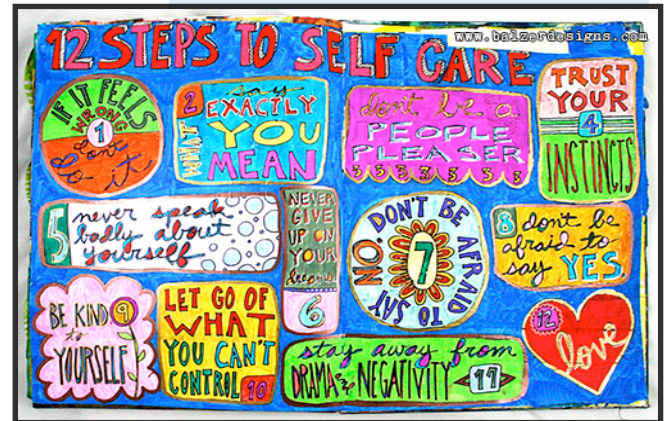 www.balzerdesigns.com
12 STEPS TO SELF CARE
IF IT FEELS
WRONG
1
don't
do it
2
say
EXACTLY
WHAT
YOU
MEAN
dont be a
PEOPLE
PLEASER
3 3 3 3 3 3 3
TRUST
YOUR
4
INSTINCTS
5
never speak
badly about
yourself
NEVER
GIVE
UP ON
YOUR
dreams
6
DON'T BE AFRAID TO SAY NO.
7
8
dont be
afraid to
say YES.
BE KIND
9
to
YOURSELF
LET GO OF
WHAT
YOU CAN'T
CONTROL
10
stay away from
DRAMA & NEGATIVITY
11
12
love